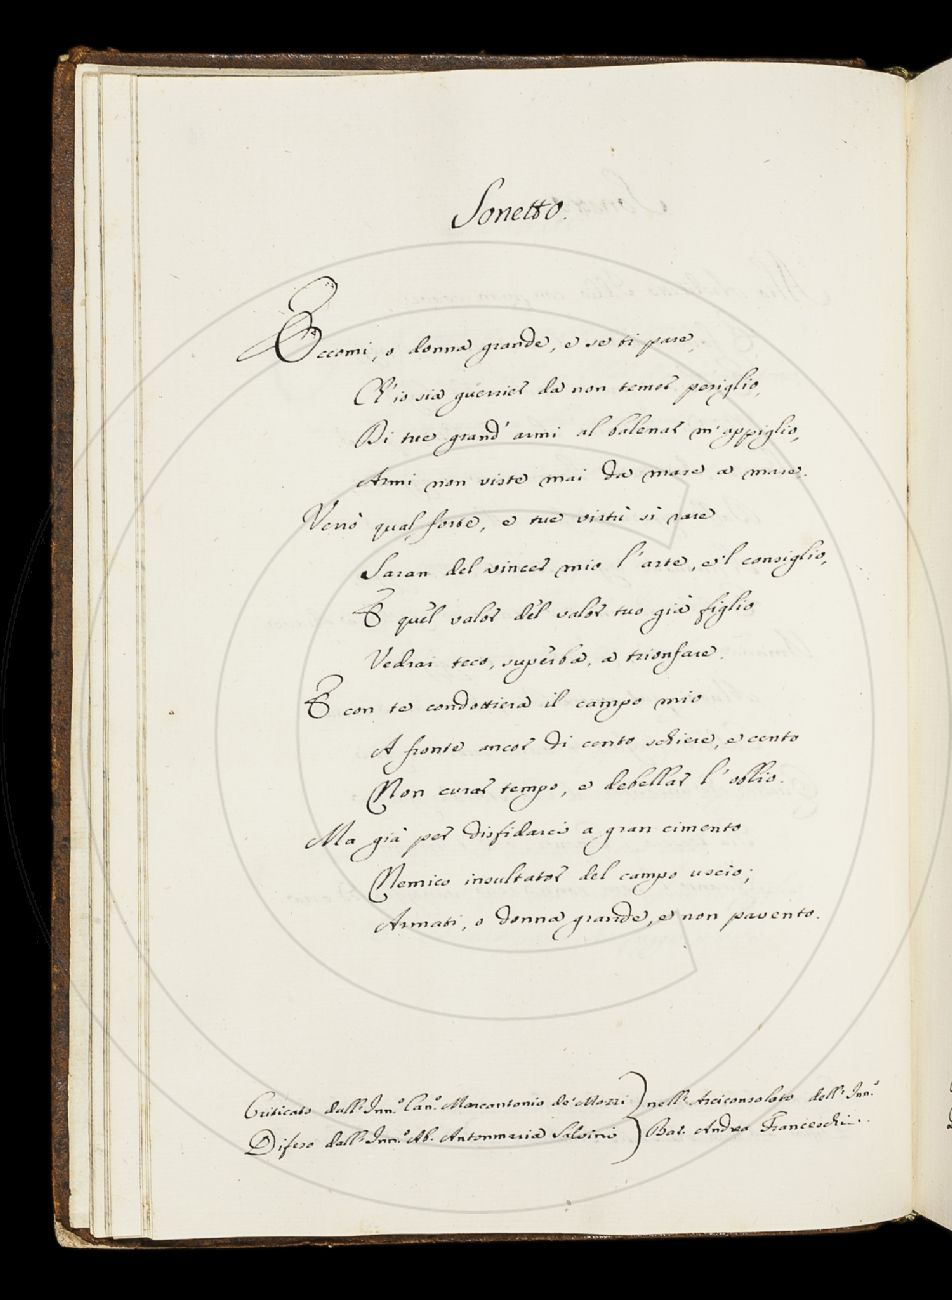 Sonetto.
Eccomi, o donna grande, e se ti pare,
Ch'io sia guerrier da non temer periglio,
Di tue grand' armi al balenar m'appiglio,
Armi non viste mai da mare a mare.
Verrò qual forte, e tue virtù sì rare
Saran del vincer mio l'arte, e'l consiglio,
E quel valor del valor tuo già figlio
Vedrai teco, superba, a trionfare.
E con te condottiera il campo mio
A fronte ancor di cento schiere, e cento
Non curar tempo, e debellar l'obblio.
Ma già per disfidarci a gran cimento
Nemico insultator del campo uscìo;
Armati, o donna grande, e non pavento.
Criticato dall' Inn.º Can.º Marcantonio de' Mozzi } nell' Arciconsolato dell' Inn.º
Difeso dall' Inn.º Ab. Antonmaria Salvini } Bal. Andrea Franceschi